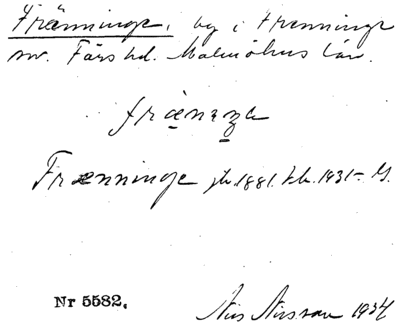 Fränninge, by i Frenninge
sn. Färs hd. Malmöhus län.
Frænninge jb. 1881. kb. 1931-
Nr 5582.
Nils Nilsson 1934